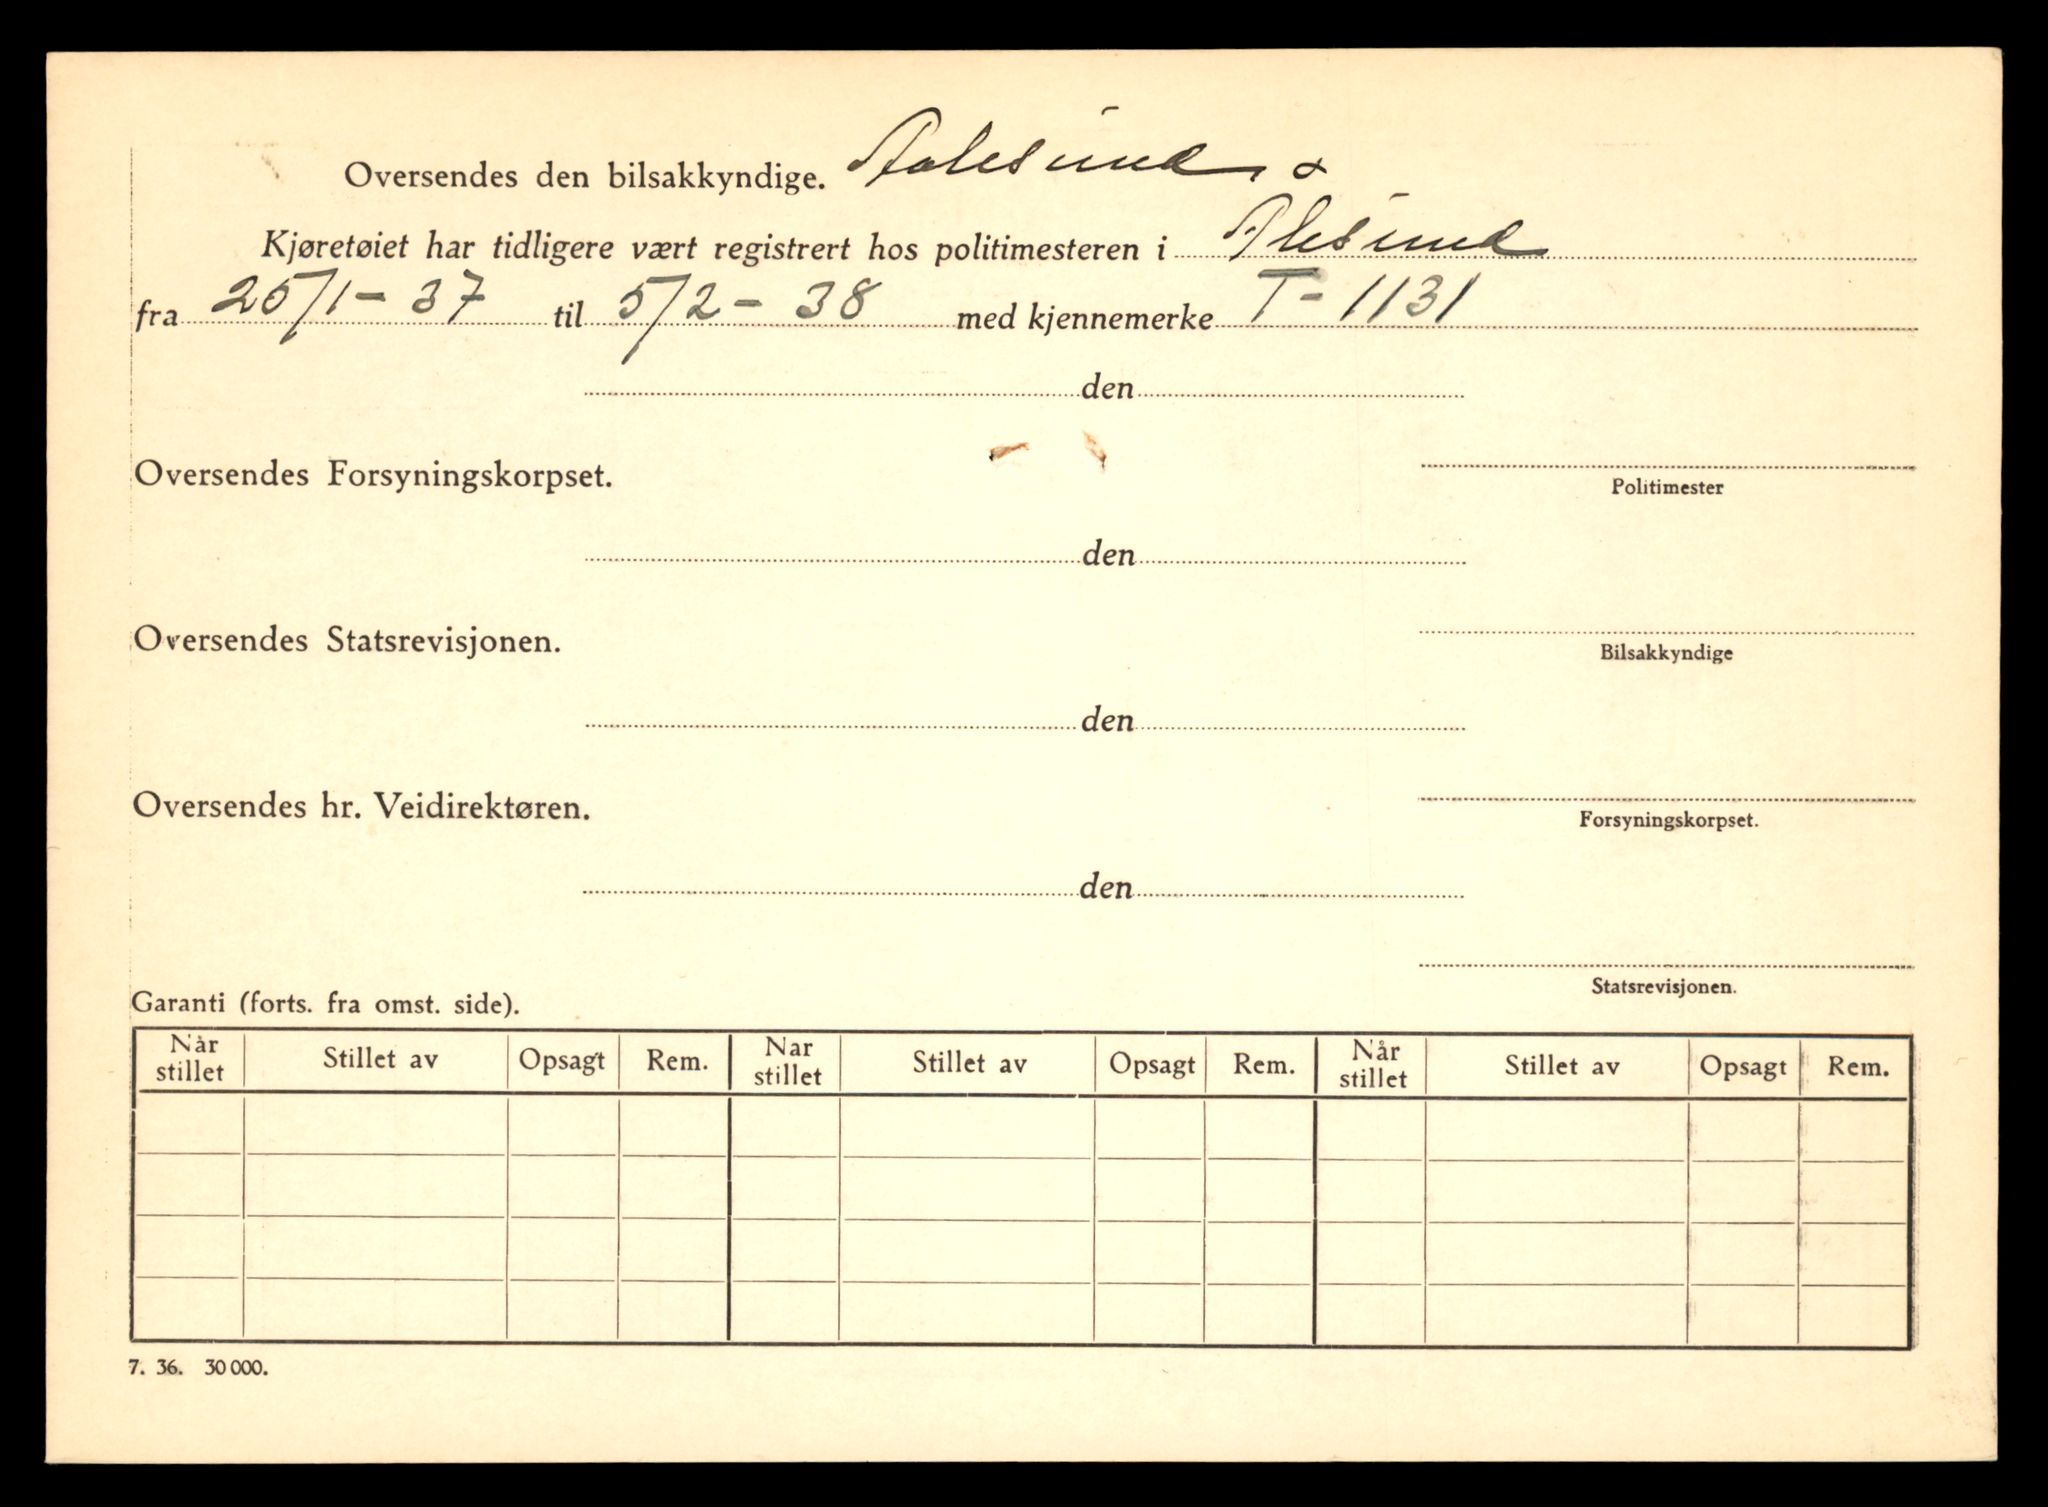 Oversendes den bilsakkyndige. Aalesund
Kjøretøiet har tidligere vært registrert hos politimesteren i Alesund
fra 25/1 - 37 til 5/2 - 38 med kjennemerke T - 1131
den
Oversendes Forsyningskorpset.
Politimester
den
Oversendes Statsrevisjonen.
Bilsakkyndige
den
Oversendes hr. Veidirektøren.
Forsyningskorpset.
den
Statsrevisjonen.
Garanti (forts. fra omst. side).
Når stillet Stillet av Opsagt Rem. Nar stillet Stillet av Opsagt Rem. Når stillet Stillet av Opsagt Rem.
7. 36. 30 000.